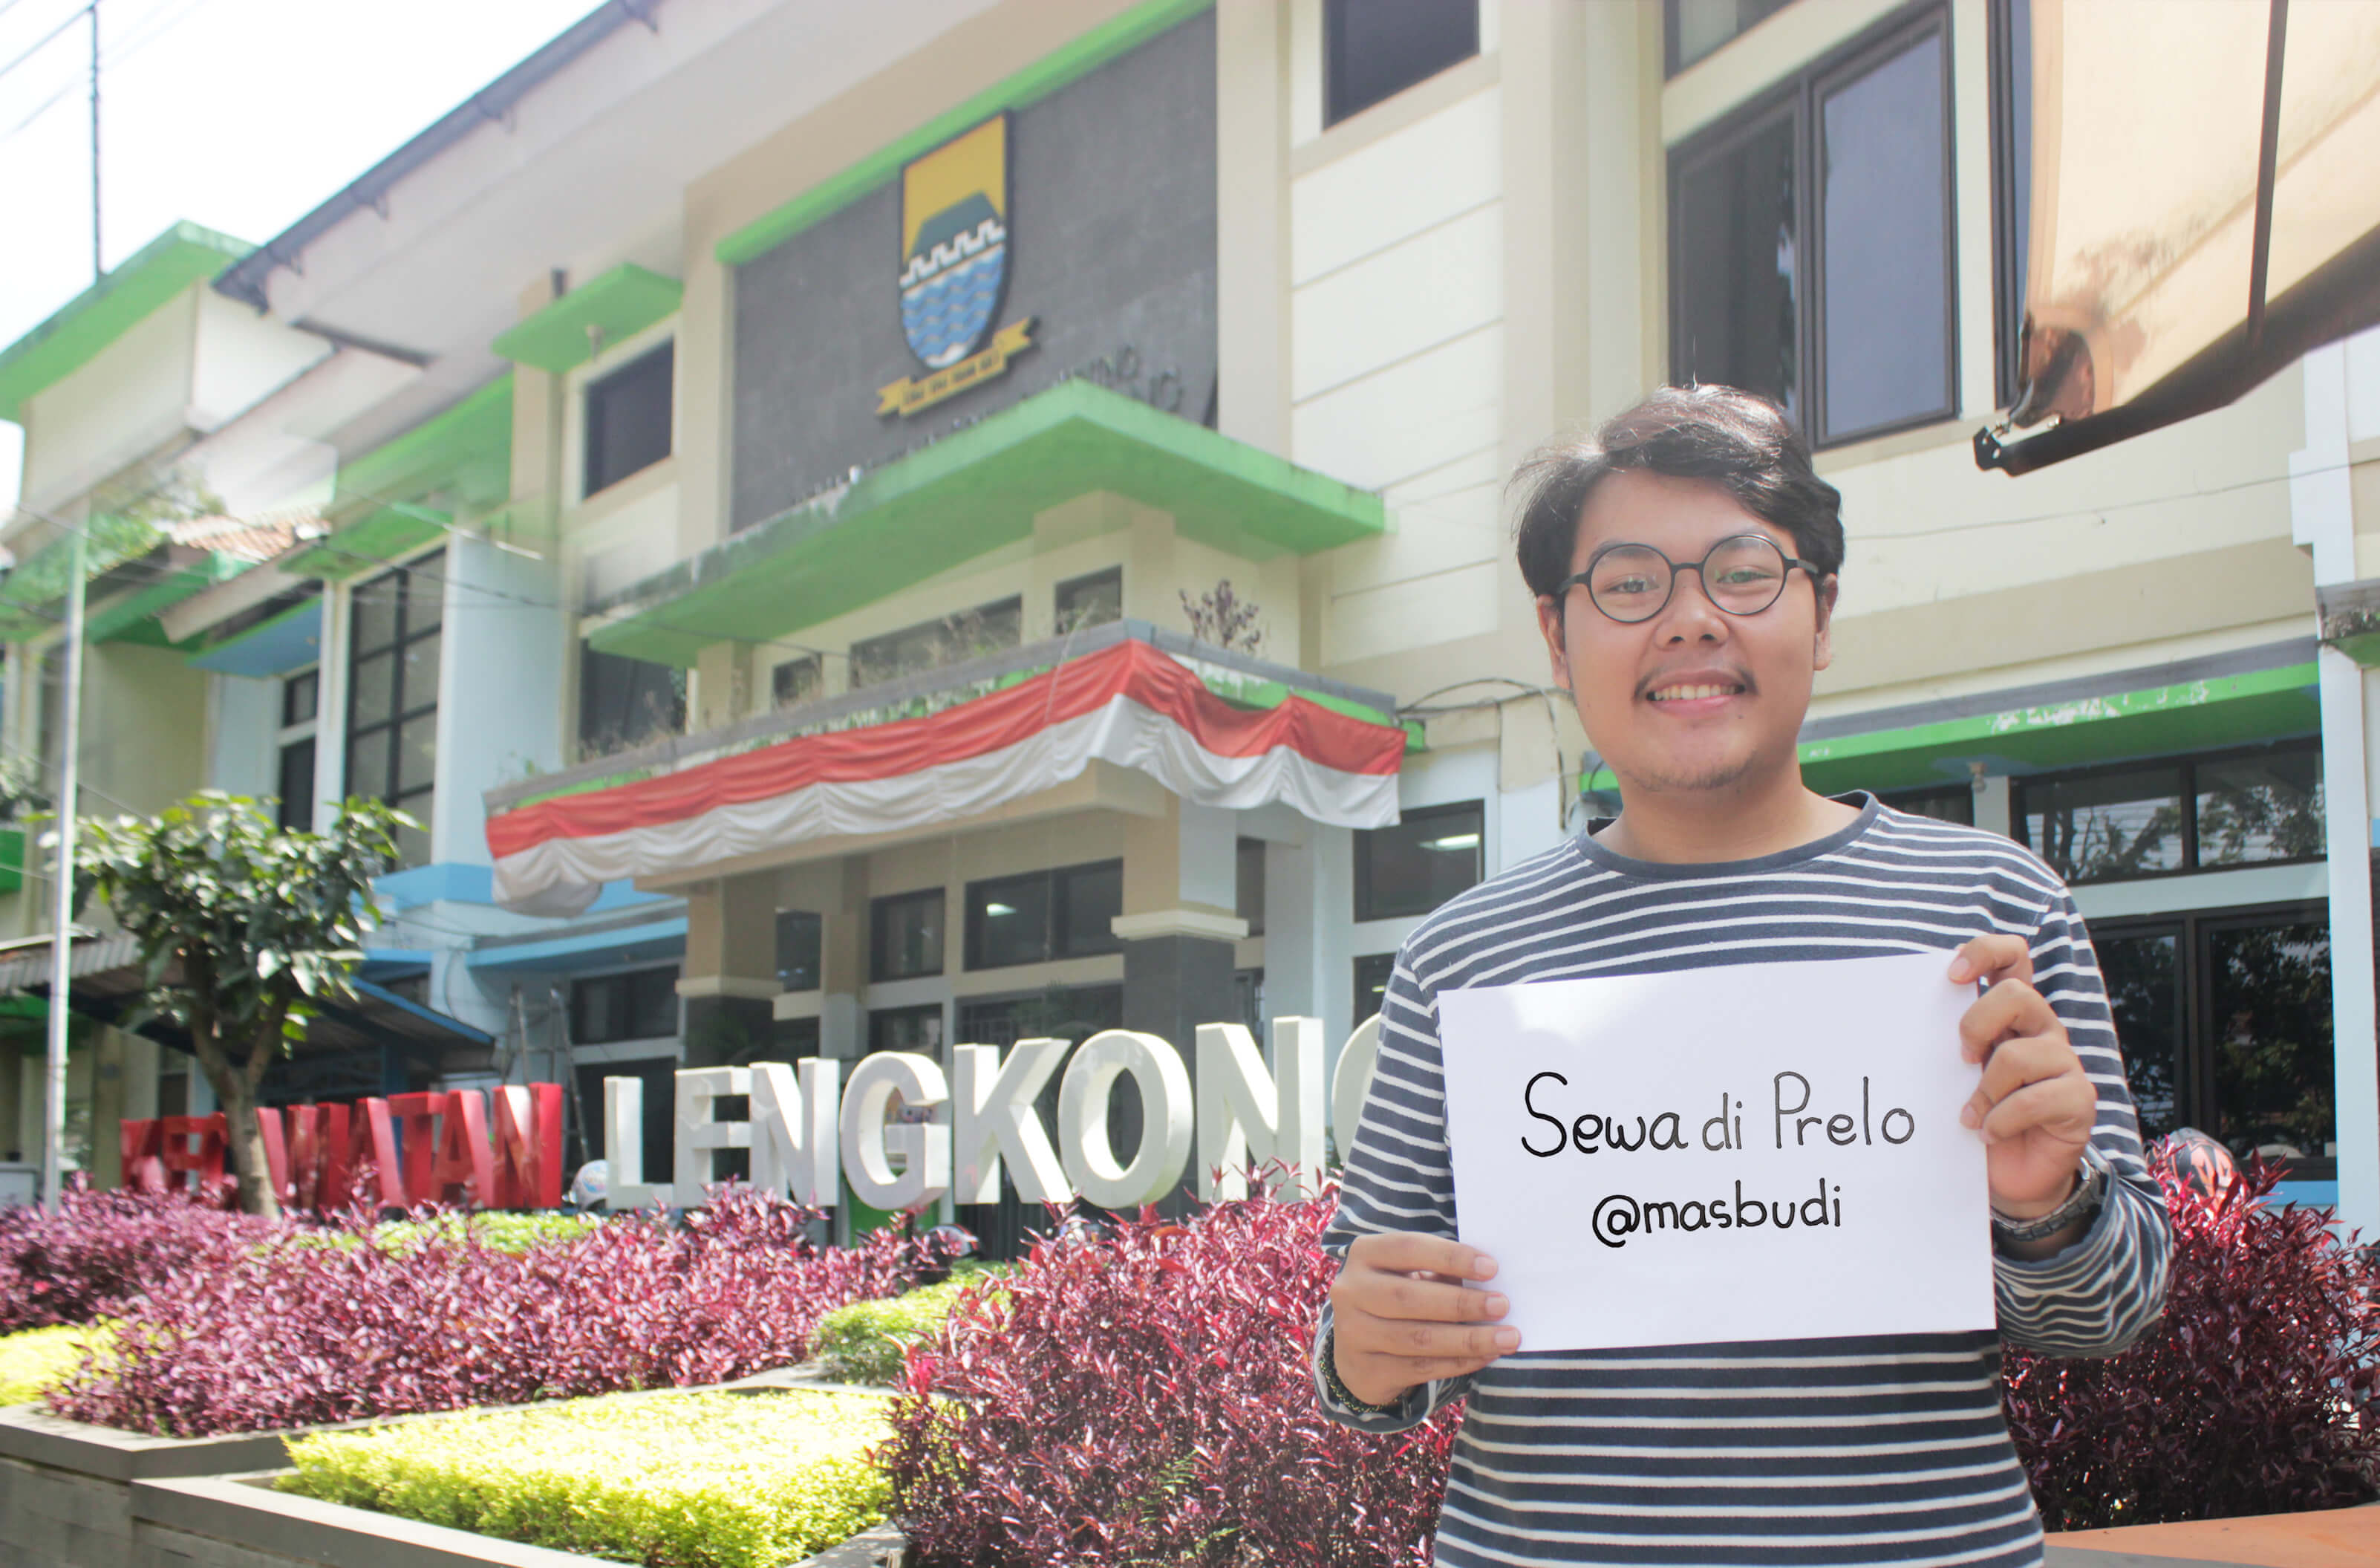 KECAMATAN LENGKONG
Sewa di Prelo
@masbudi